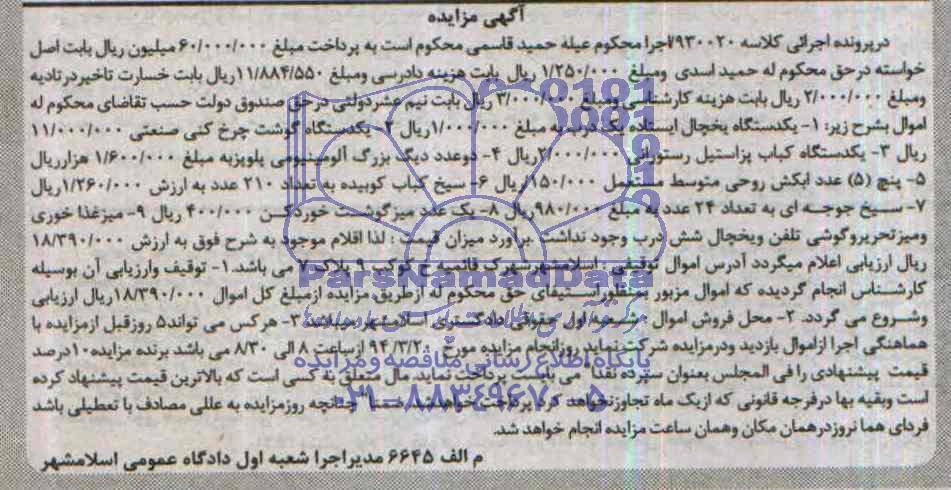 آگهی مزایده
درپرونده اجرائی کلاسه ۷۹۳۰۰۲۰اجرا محکوم عیله حمید قاسمی محکوم است به پرداخت مبلغ ۶۰/۰۰۰/۰۰۰میلیون ریال بابت اصل
خواسته درحق محکوم له حمید اسدی ومبلغ ۱/۲۵۰/۰۰۰ ریال بابت هزینه دادرسی ومبلغ ۱۱/۸۸۴/۵۵۰ریال بابت خسارت تاخیردرتادیه
ومبلغ ۲/۰۰۰/۰۰۰ ریال بابت هزینه کارشناسی ومبلغ ۳/۰۰۰/۰۰۰ ریال بابت نیم عشردولتی درحق صندوق دولت حسب تقاضای محکوم له
اموال بشرح زیر: ۱- یکدستگاه یخچال ایستاده یک درب به مبلغ ۱/۰۰۰/۰۰۰ریال ۲- یکدستگاه گوشت چرخ کنی صنعتی ۱۱/۰۰۰/۰۰۰
ریال ۳- یکدستگاه کباب پزاستیل رستورانی ۲/۰۰۰/۰۰۰ریال ۴- دوعدد دیگ بزرگ آلومینیومی پلوپزبه مبلغ ۱/۶۰۰/۰۰۰ هزارریال
۵- پنج (۵) عدد ابکش روحی متوسط مستعمل ۱۵۰/۰۰۰ریال ۶- سیخ کباب کوبیده به تعداد ۲۱۰ عدد به ارزش ۱/۲۶۰/۰۰۰ریال
۷- سیخ جوجه ای به تعداد ۲۴ عدد به مبلغ ۹۸۰/۰۰۰ریال ۸- یک عدد میزگوشت خوردکن ۴۰۰/۰۰۰ ریال ۹- میزغذا خوری
ومیزتحریروگوشی تلفن ویخچال شش درب وجود نداشت براورد میزان قیمت : لذا اقلام موجود به شرح فوق به ارزش ۱۸/۳۹۰/۰۰۰
ریال ارزیابی اعلام میگردد آدرس اموال توقیفی : اسلامشهرشهرک قائمیه خ کوکبی ۹ پلاک ۷ می باشد.۱- توقیف وارزیابی آن بوسیله
کارشناس انجام گردیده که اموال مزبور بمنظوراستیفای حق محکوم له ازطریق مزایده ازمبلغ کل اموال ۱۸/۳۹۰/۰۰۰ریال ارزیابی
وشروع می گردد. ۲- محل فروش اموال شعبه اول حقوقی دادگستری اسلامشهر میباشد ۳- هرکس می تواند۵ روزقبل ازمزایده با
هماهنگی اجرا ازاموال بازدید ودرمزایده شرکت نماید روزانجام مزایده مورخ ۹۴/۳/۲۰ ازساعت ۸ الی ۸/۳۰ می باشد برنده مزایده۱۰درصد
قیمت پیشنهادی را فی المجلس بعنوان سپرده نقدا" می بایست پرداخت نماید مال متعلق به کسی است که بالاترین قیمت پیشنهاد کرده
است وبقیه بها درفرجه قانونی که ازیک ماه تجاوزنخواهد کرد پرداخت خواهد شد ضمنا" چنانچه روزمزایده به عللی مصادف با تعطیلی باشد
فردای همانروزدرهمان مکان وهمان ساعت مزایده انجام خواهد شد.
م الف ۶۶۴۵ مدیراجرا شعبه اول دادگاه عمومی اسلامشهر
ParsNamadData
پایگاه اطلاع رسانی مناقصه ومزایده
۰۲۱-۸۸۳۴۹۶۷۰-۵